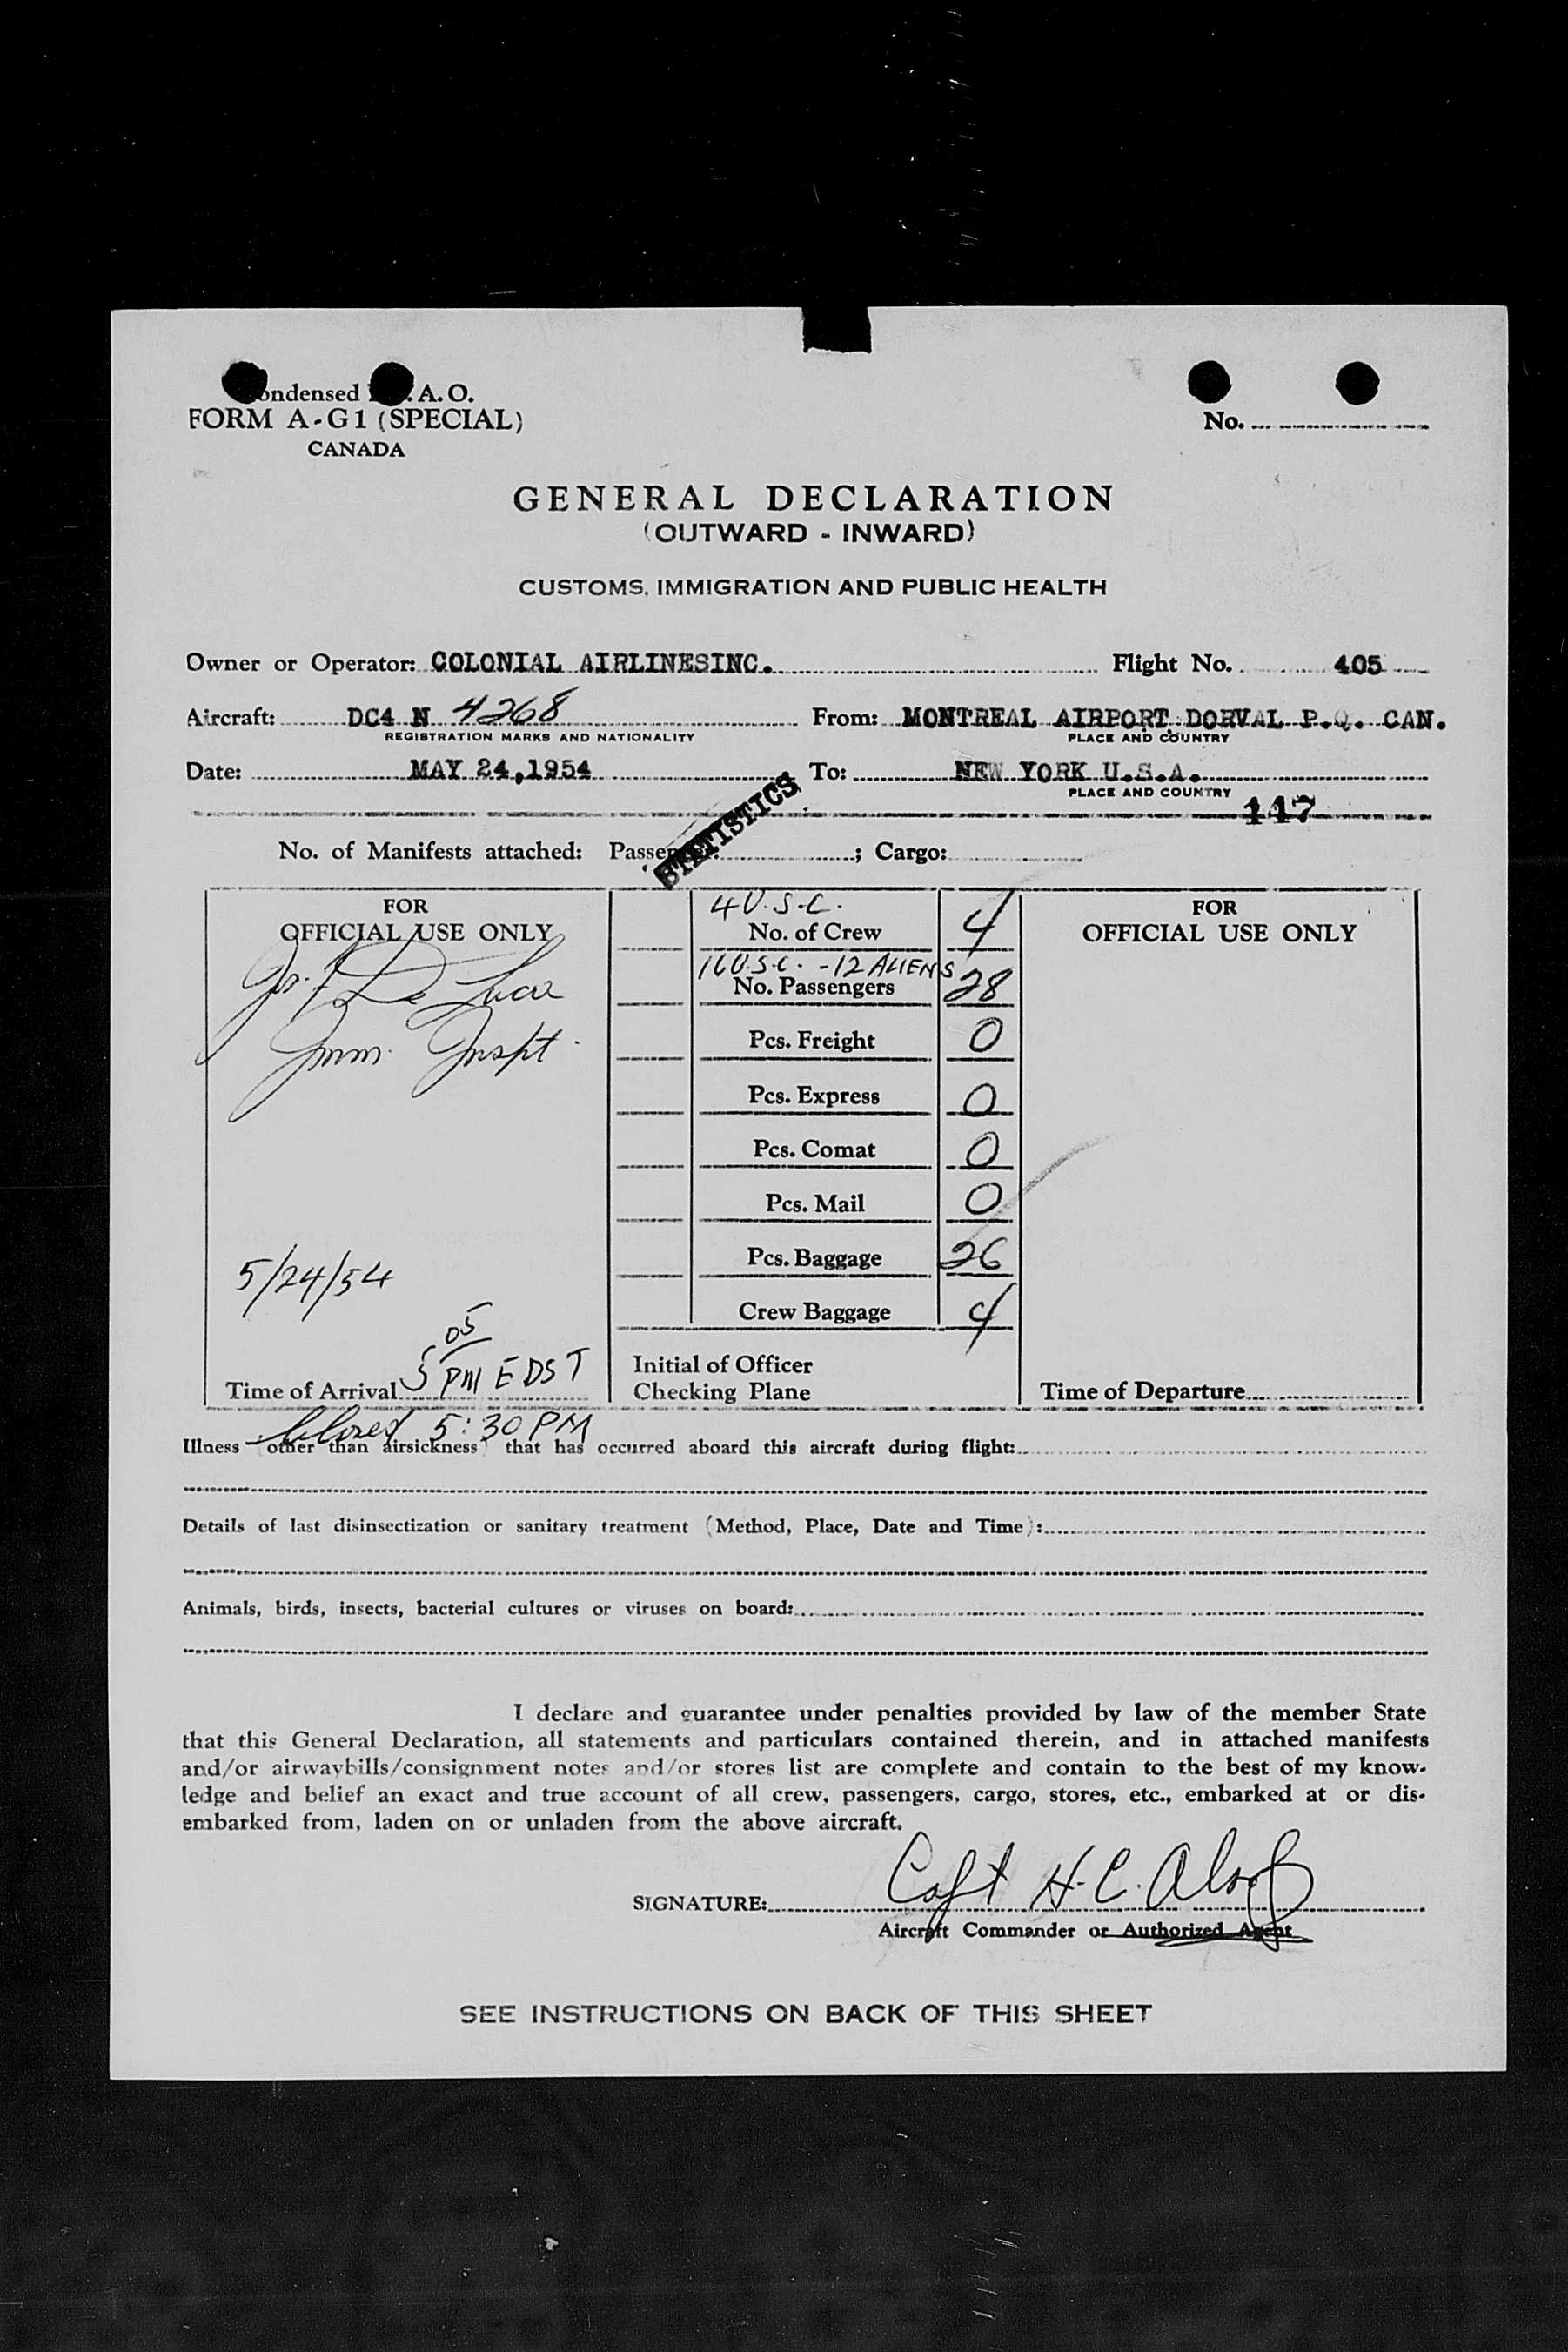 ondensed A.O.
FORM A-G1 (SPECIAL)
CANADA
No.
GENERAL DECLARATION
(OUTWARD - INWARD)
CUSTOMS, IMMIGRATION AND PUBLIC HEALTH
Owner or Operator: COLONIAL AIRLINESINC. Flight No. 405
Aircraft: DC4 N 4268 From: MONTREAL AIRPORT DORVAL P.Q. CAN.
REGISTRATION MARKS AND NATIONALITY PLACE AND COUNTRY
Date: MAY 24,1954 To: NEW YORK U.S.A.
PLACE AND COUNTRY
147
STATISTICS
No. of Manifests attached: Passenger: ; Cargo:
FOR
OFFICIAL USE ONLY
De Luca
Imm. Inspt.
5/24/54
5 05 PM EDST
Time of Arrival
Closed 5:30 PM
4 U.S.C.
No. of Crew 4
16 U.S.C. - 12 ALIENS
No. Passengers 28
Pcs. Freight 0
Pcs. Express 0
Pcs. Comat 0
Pcs. Mail 0
Pcs. Baggage 26
Crew Baggage 4
Initial of Officer
Checking Plane
FOR
OFFICIAL USE ONLY
Time of Departure
Illness (other than airsickness) that has occurred aboard this aircraft during flight:
Details of last disinsectization or sanitary treatment (Method, Place, Date and Time):
Animals, birds, insects, bacterial cultures or viruses on board:
I declare and guarantee under penalties provided by law of the member State
that this General Declaration, all statements and particulars contained therein, and in attached manifests
and/or airwaybills/consignment notes and/or stores list are complete and contain to the best of my know-
ledge and belief an exact and true account of all crew, passengers, cargo, stores, etc., embarked at or dis-
embarked from, laden on or unladen from the above aircraft.
SIGNATURE: Capt H.C.
Aircraft Commander or Authorized Agent
SEE INSTRUCTIONS ON BACK OF THIS SHEET